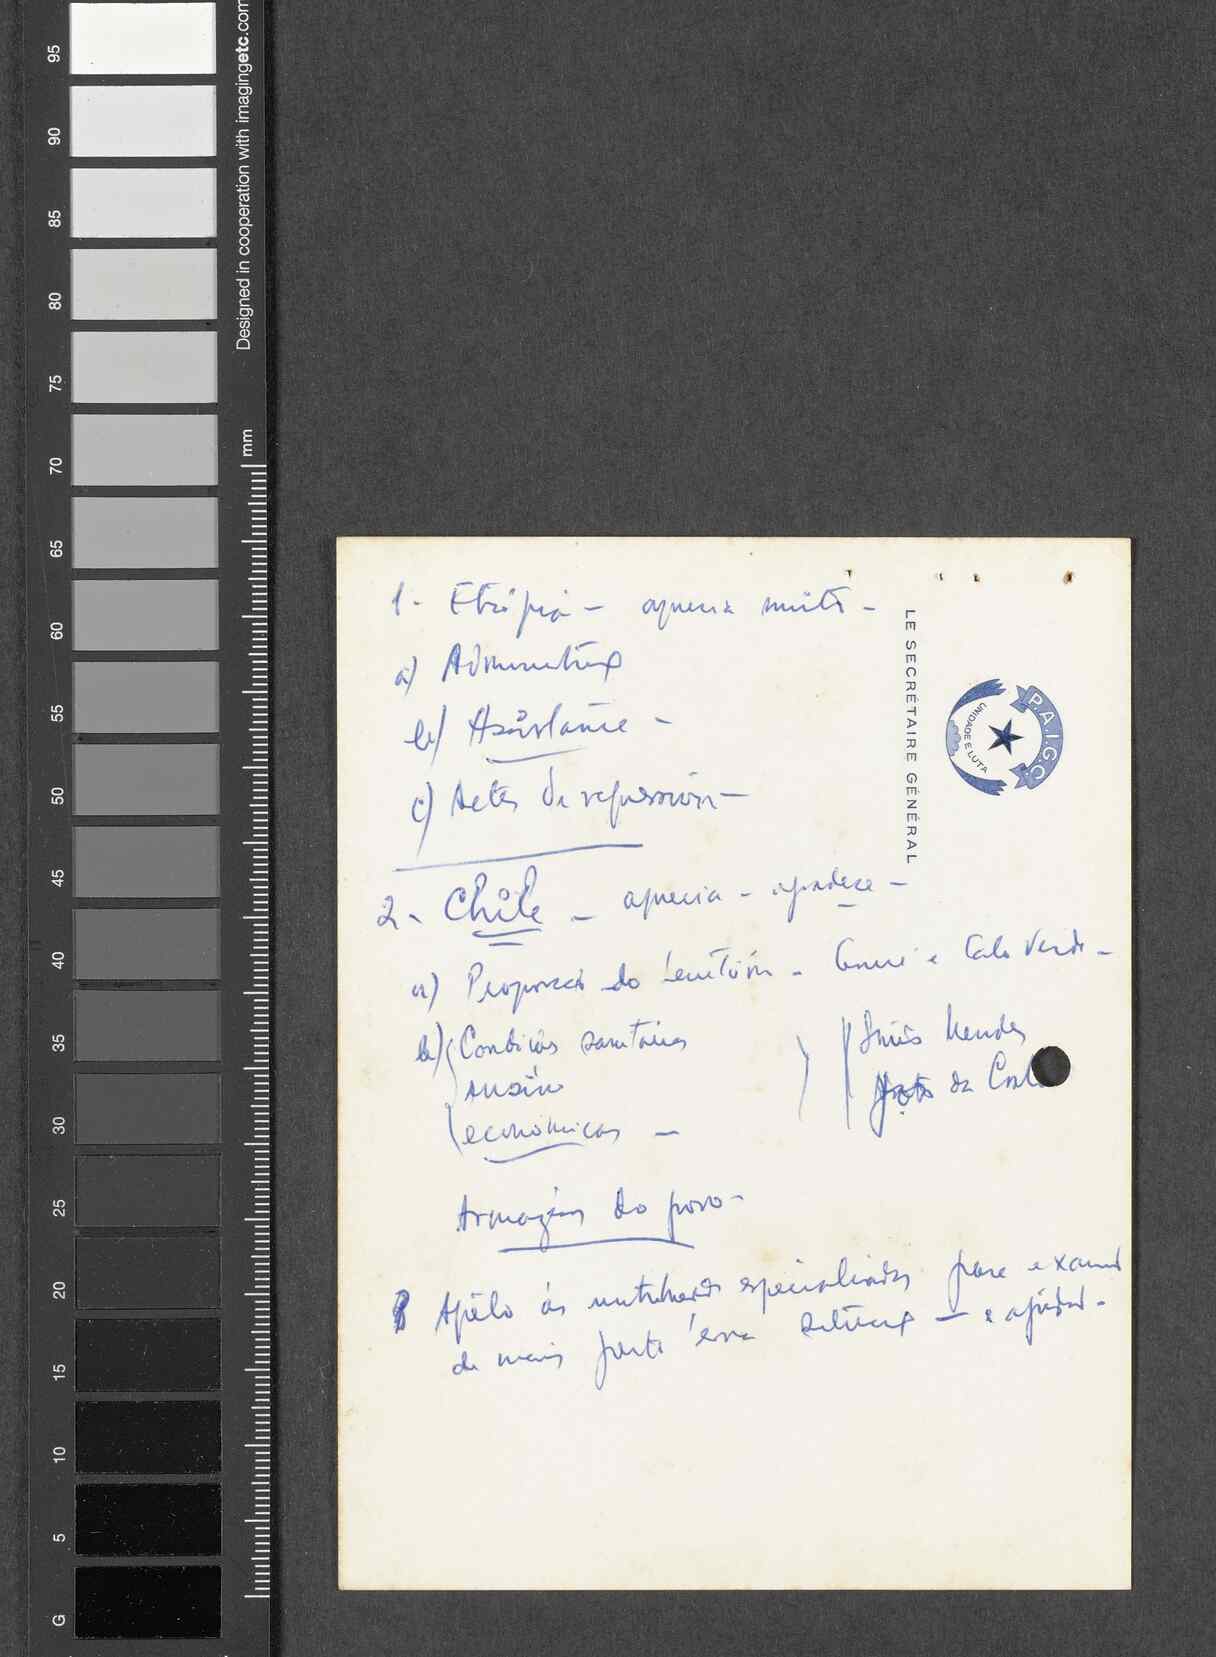 95
90
85
80
75
70
65
60
55
50
45
40
35
30
25
20
15
10
5
G
Designed in cooperation with imagingetc.com
mm
LE SECRÉTAIRE GÉNÉRAL
P.A.I.G.C.
UNIDADE E LUTA
1- Etiópia - aprecia muito -
a) Administração
b) Assistance -
c) Actes de repression -
2- Chile - aprecia - agradece -
a) Proporção do território - Guiné e Cabo Verde -
b) Condições sanitárias
ensino
económicas -
Mendes
da Costa
Armazéns do povo -
Apêlo às especializadas para
de mais perto essa situação - e ajudar -